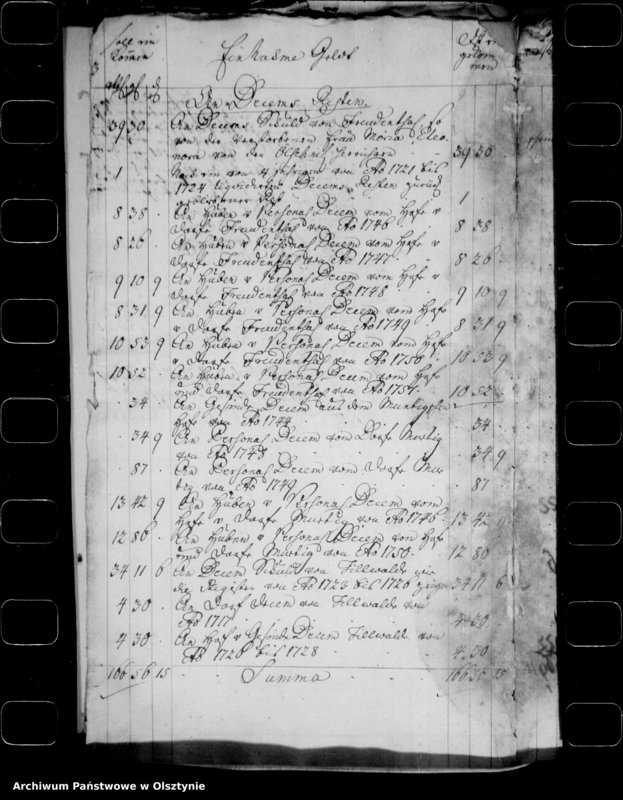 Soll ein kommen
Einnahme Geldt
Ist ein gekommen
An Decems Resten
39 30 An Decems Schuld von Freudenthal, so
von der Verstorbenen Frau Maria Eleo
nora von der 39 30
1 von 4 Jahren von Ao 1721 bis
1724 Decems Resten zurück
1
8 38 An Huben u Personal Decem vom Hofe u
Dorfe Freudenthal von Ao 1746 8 38
8 26 An Huben u Personal Decem vom Hofe u
Dorfe Freudenthal von Ao 1747 8 26
9 10 9 An Huben u Personal Decem vom Hofe u
Dorfe Freudenthal von Ao 1748 9 10 9
8 31 9 An Huben u Personal Decem vom Hofe
u Dorfe Freudenthal von Ao 1749 8 31 9
10 53 9 An Huben u Personal Decem vom Hofe
u Dorfe Freudenthal von Ao 1750 10 53 9
10 52 An Huben u Personal Decem vom Hofe
und Dorfe Freudenthal von Ao 1751 10 52
34 An Gesinde Decem aus dem
Hofe von Ao 1744 34
34 9 An Personal Decem vom Dorfe
von Ao 1748 34 9
87 An Personal Decem vom Dorfe
von Ao 1749 87
13 42 9 An Huben u Personal Decem vom
Hofe u Dorfe von Ao 1746 13 42
12 80 An Huben u Personal Decem vom Hofe
und Dorfe von Ao 1750 12 80
34 11 6 An Decem Schuld von Tillwalde wie
die Register von Ao 1723 bis 1726 zeigen 34 11 6
4 30 An Dorf Decem von Tillwalde von
Ao 1717 4 30
4 30 An Hof u Gesinde Decem Tillwalde von
Ao 1726 bis 1728 4 30
166 56 15 Summa 166 56 15
Archiwum Państwowe w Olsztynie